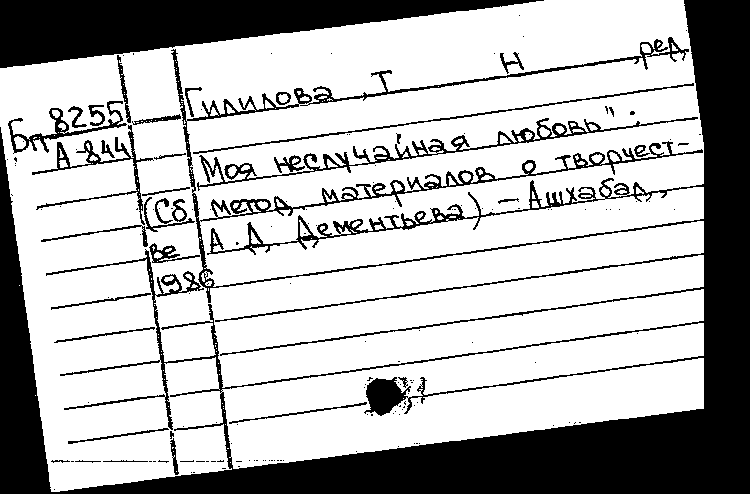 Бп 8255
А-844
Гилилова, Т Н, ред.
Моя неслучайная любовь":
(Сб. метод. материалов о творчест-
ве А.Д. Дементьева). – Ашхабад,
1986